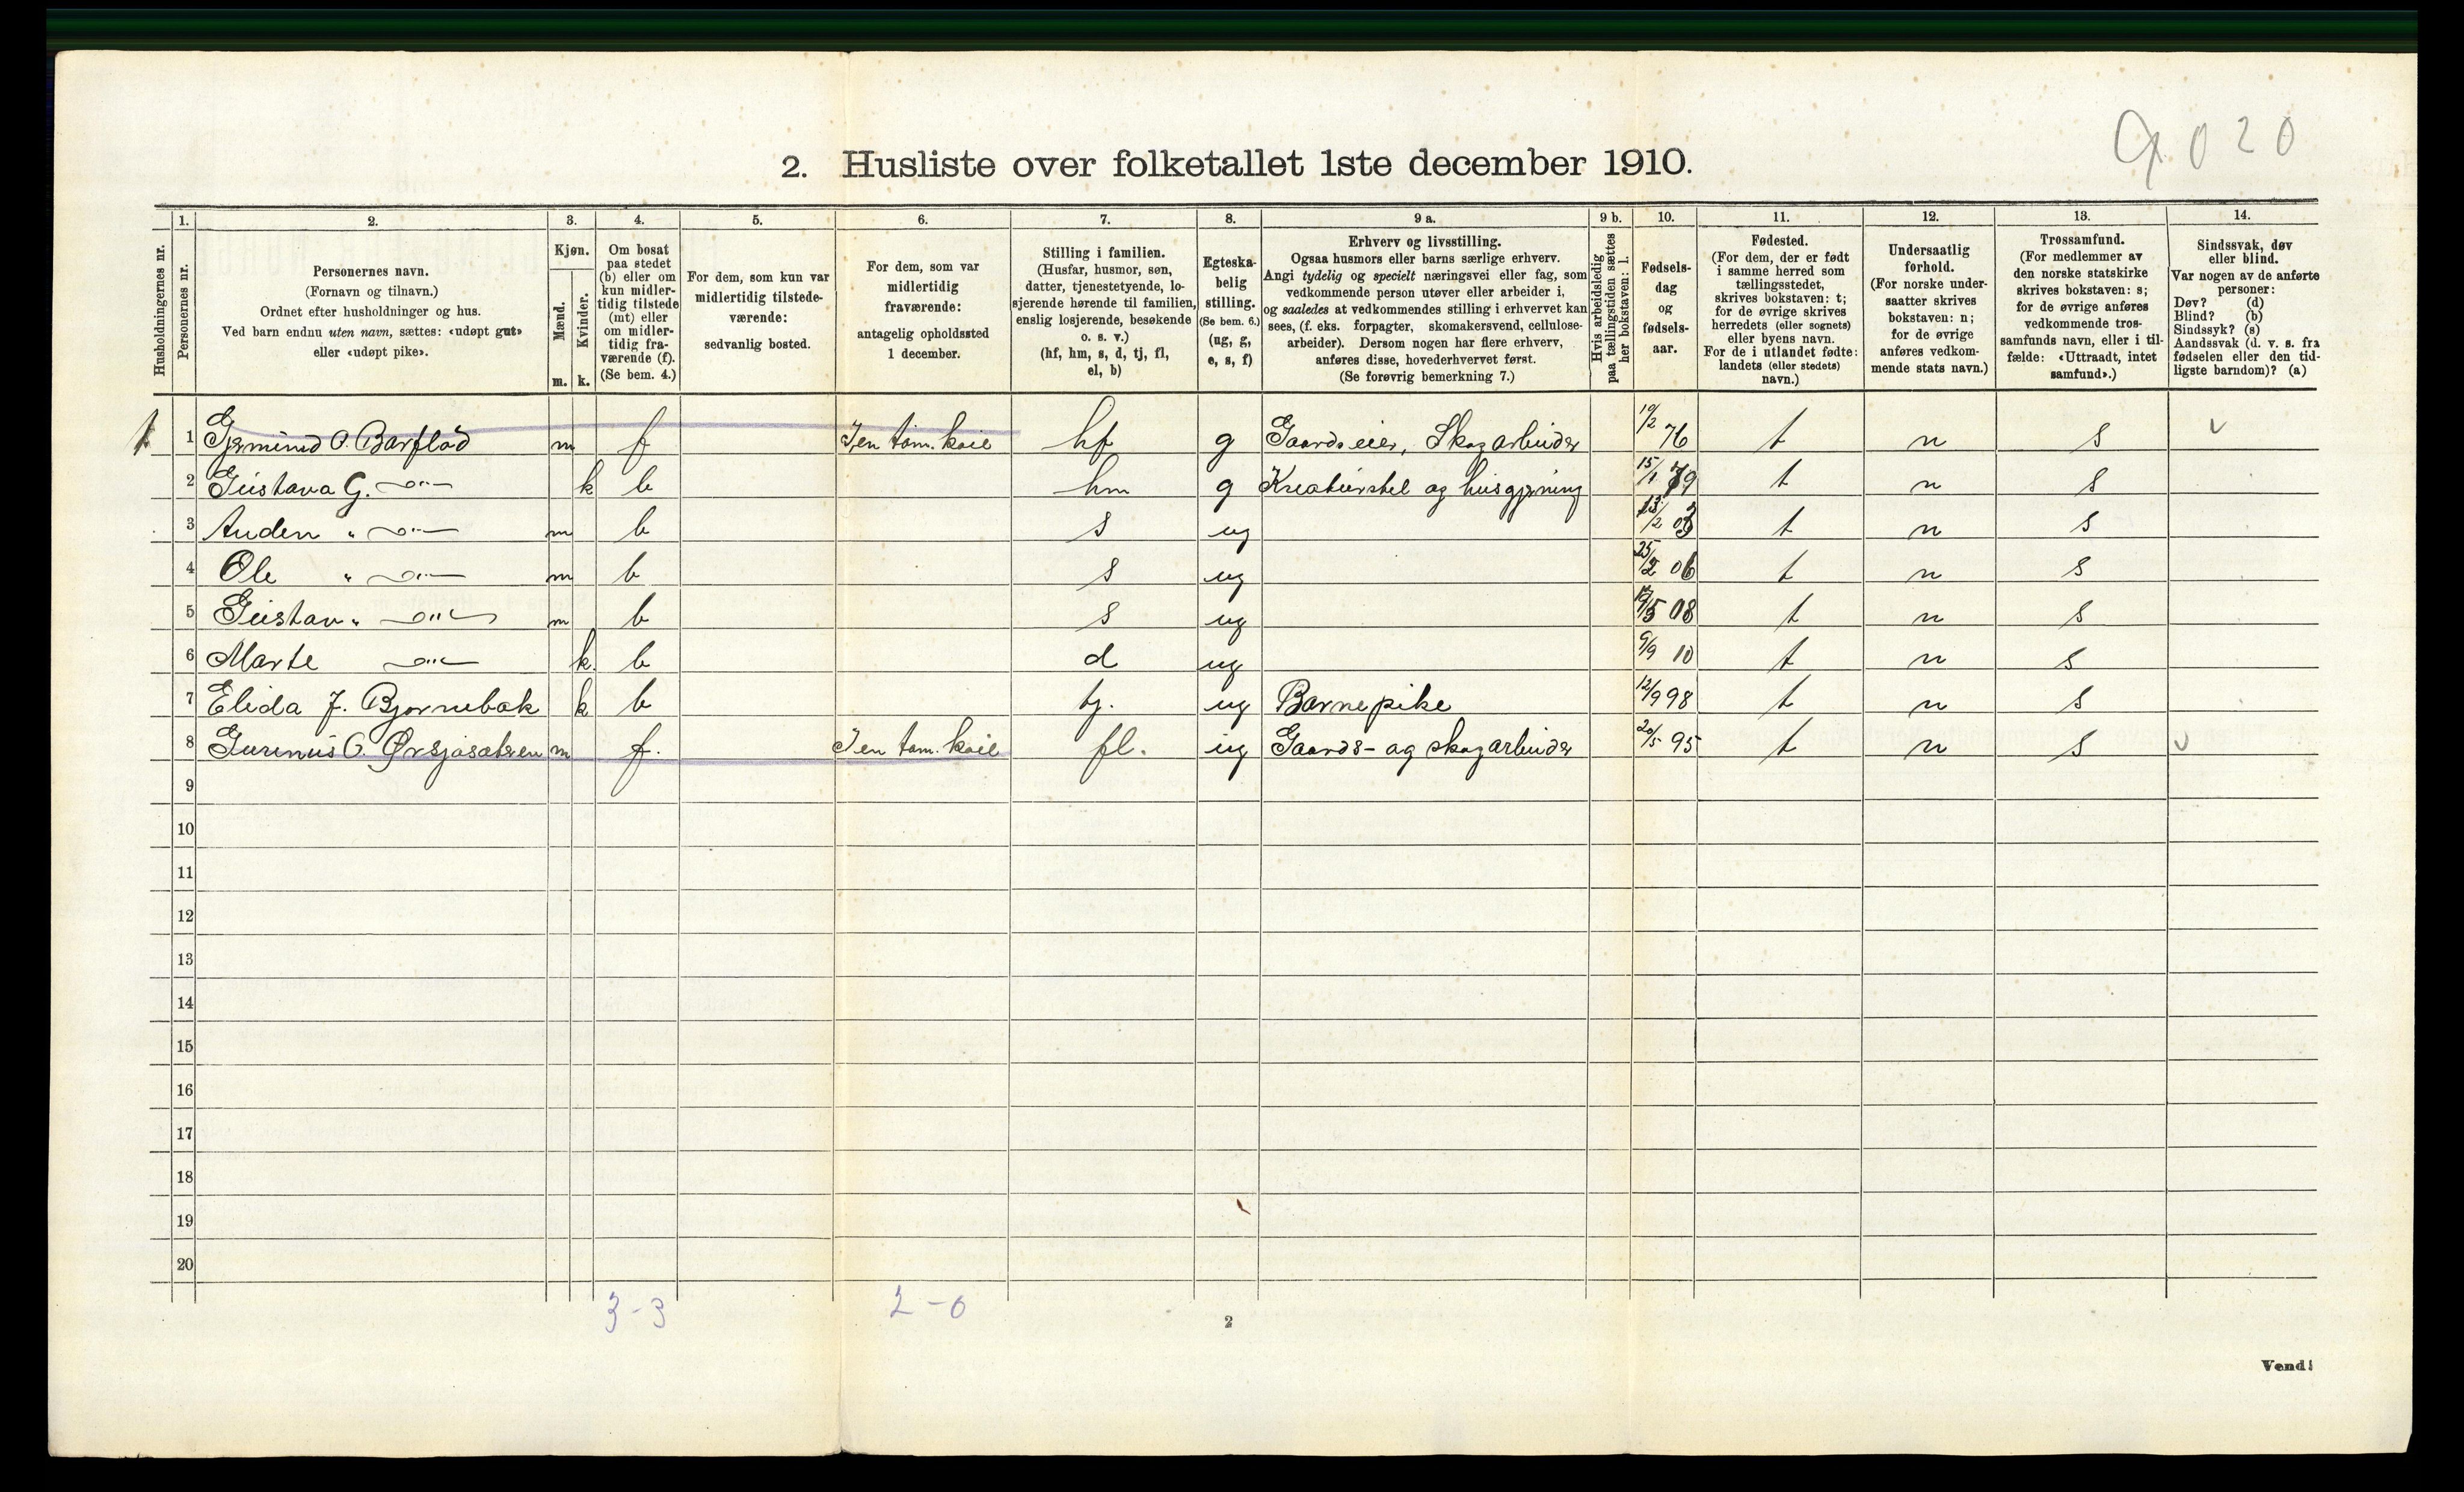 9020
2. Husliste over folketallet 1ste december 1910.
Husholdningernes nr.
1. Personernes nr.
2. Personernes navn. (Fornavn og tilnavn.) Ordnet efter husholdninger og hus. Ved barn endnu uten navn, sættes: «udøpt gut» eller «udøpt pike».
3. Kjøn. Mænd. m. Kvinder. k.
4. Om bosat paa stedet (b) eller om kun midlertidig tilstede (mt) eller om midlertidig fraværende (f). (Se bem. 4.)
5. For dem, som kun var midlertidig tilstedeværende: sedvanlig bosted.
6. For dem, som var midlertidig fraværende: antagelig opholdssted 1 december.
7. Stilling i familien. (Husfar, husmor, søn, datter, tjenestetyende, losjerende hørende til familien, enslig losjerende, besøkende o. s. v.) (hf, hm, s, d, tj, fl, el, b)
8. Egteskabelig stilling. (Se bem. 6.) (ug, g, e, s, f)
9 a. Erhverv og livsstilling. Ogsaa husmors eller barns særlige erhverv. Angi tydelig og specielt næringsvei eller fag, som vedkommende person utøver eller arbeider i, og saaledes at vedkommendes stilling i erhvervet kan sees, (f. eks. forpagter, skomakersvend, cellulosearbeider). Dersom nogen har flere erhverv, anføres disse, hovederhvervet først. (Se forøvrig bemerkning 7.)
9 b. Hvis arbeidsledig paa tællingstiden sættes her bokstaven: l.
10. Fødselsdag og fødselsaar.
11. Fødested. (For dem, der er født i samme herred som tællingsstedet, skrives bokstaven: t; for de øvrige skrives herredets (eller sognets) eller byens navn. For de i utlandet fødte: landets (eller stedets) navn.)
12. Undersaatlig forhold. (For norske undersaatter skrives bokstaven: n; for de øvrige anføres vedkommende stats navn.)
13. Trossamfund. (For medlemmer av den norske statskirke skrives bokstaven: s; for de øvrige anføres vedkommende trossamfunds navn, eller i tilfælde: «Uttraadt, intet samfund».)
14. Sindssvak, døv eller blind. Var nogen av de anførte personer: Døv? (d) Blind? (b) Sindssyk? (s) Aandssvak (d. v. s. fra fødselen eller den tidligste barndom)? (a)
1 1 O. Barflod m f I en tøm. koie hf g Gaardseier, Skogarbeider 10/2 76 t n s
2 Gustava G. —"— k b hm g Kreaturstel og husgjerning 15/1 79 t n s
3 Auden " —"— m b s ug 13/2 03 t n s
4 Ole " —"— m b s ug 25/2 06 t n s
5 Gustav " —"— m b s ug 08 t n s
6 Marte —"— k. b d ug 9/9 10 t n s
7 Elida J. Bjørnebak k b tj. ug Barnepike 12/9 98 t n s
8 Gunnus O. Ørsjøsætren m f. I en tøm. koie fl. ug Gaards- og skogarbeider 20/5 95 t n s
9
10
11
12
13
14
15
16
17
18
19
20
3-3 2-0
2
Vend!